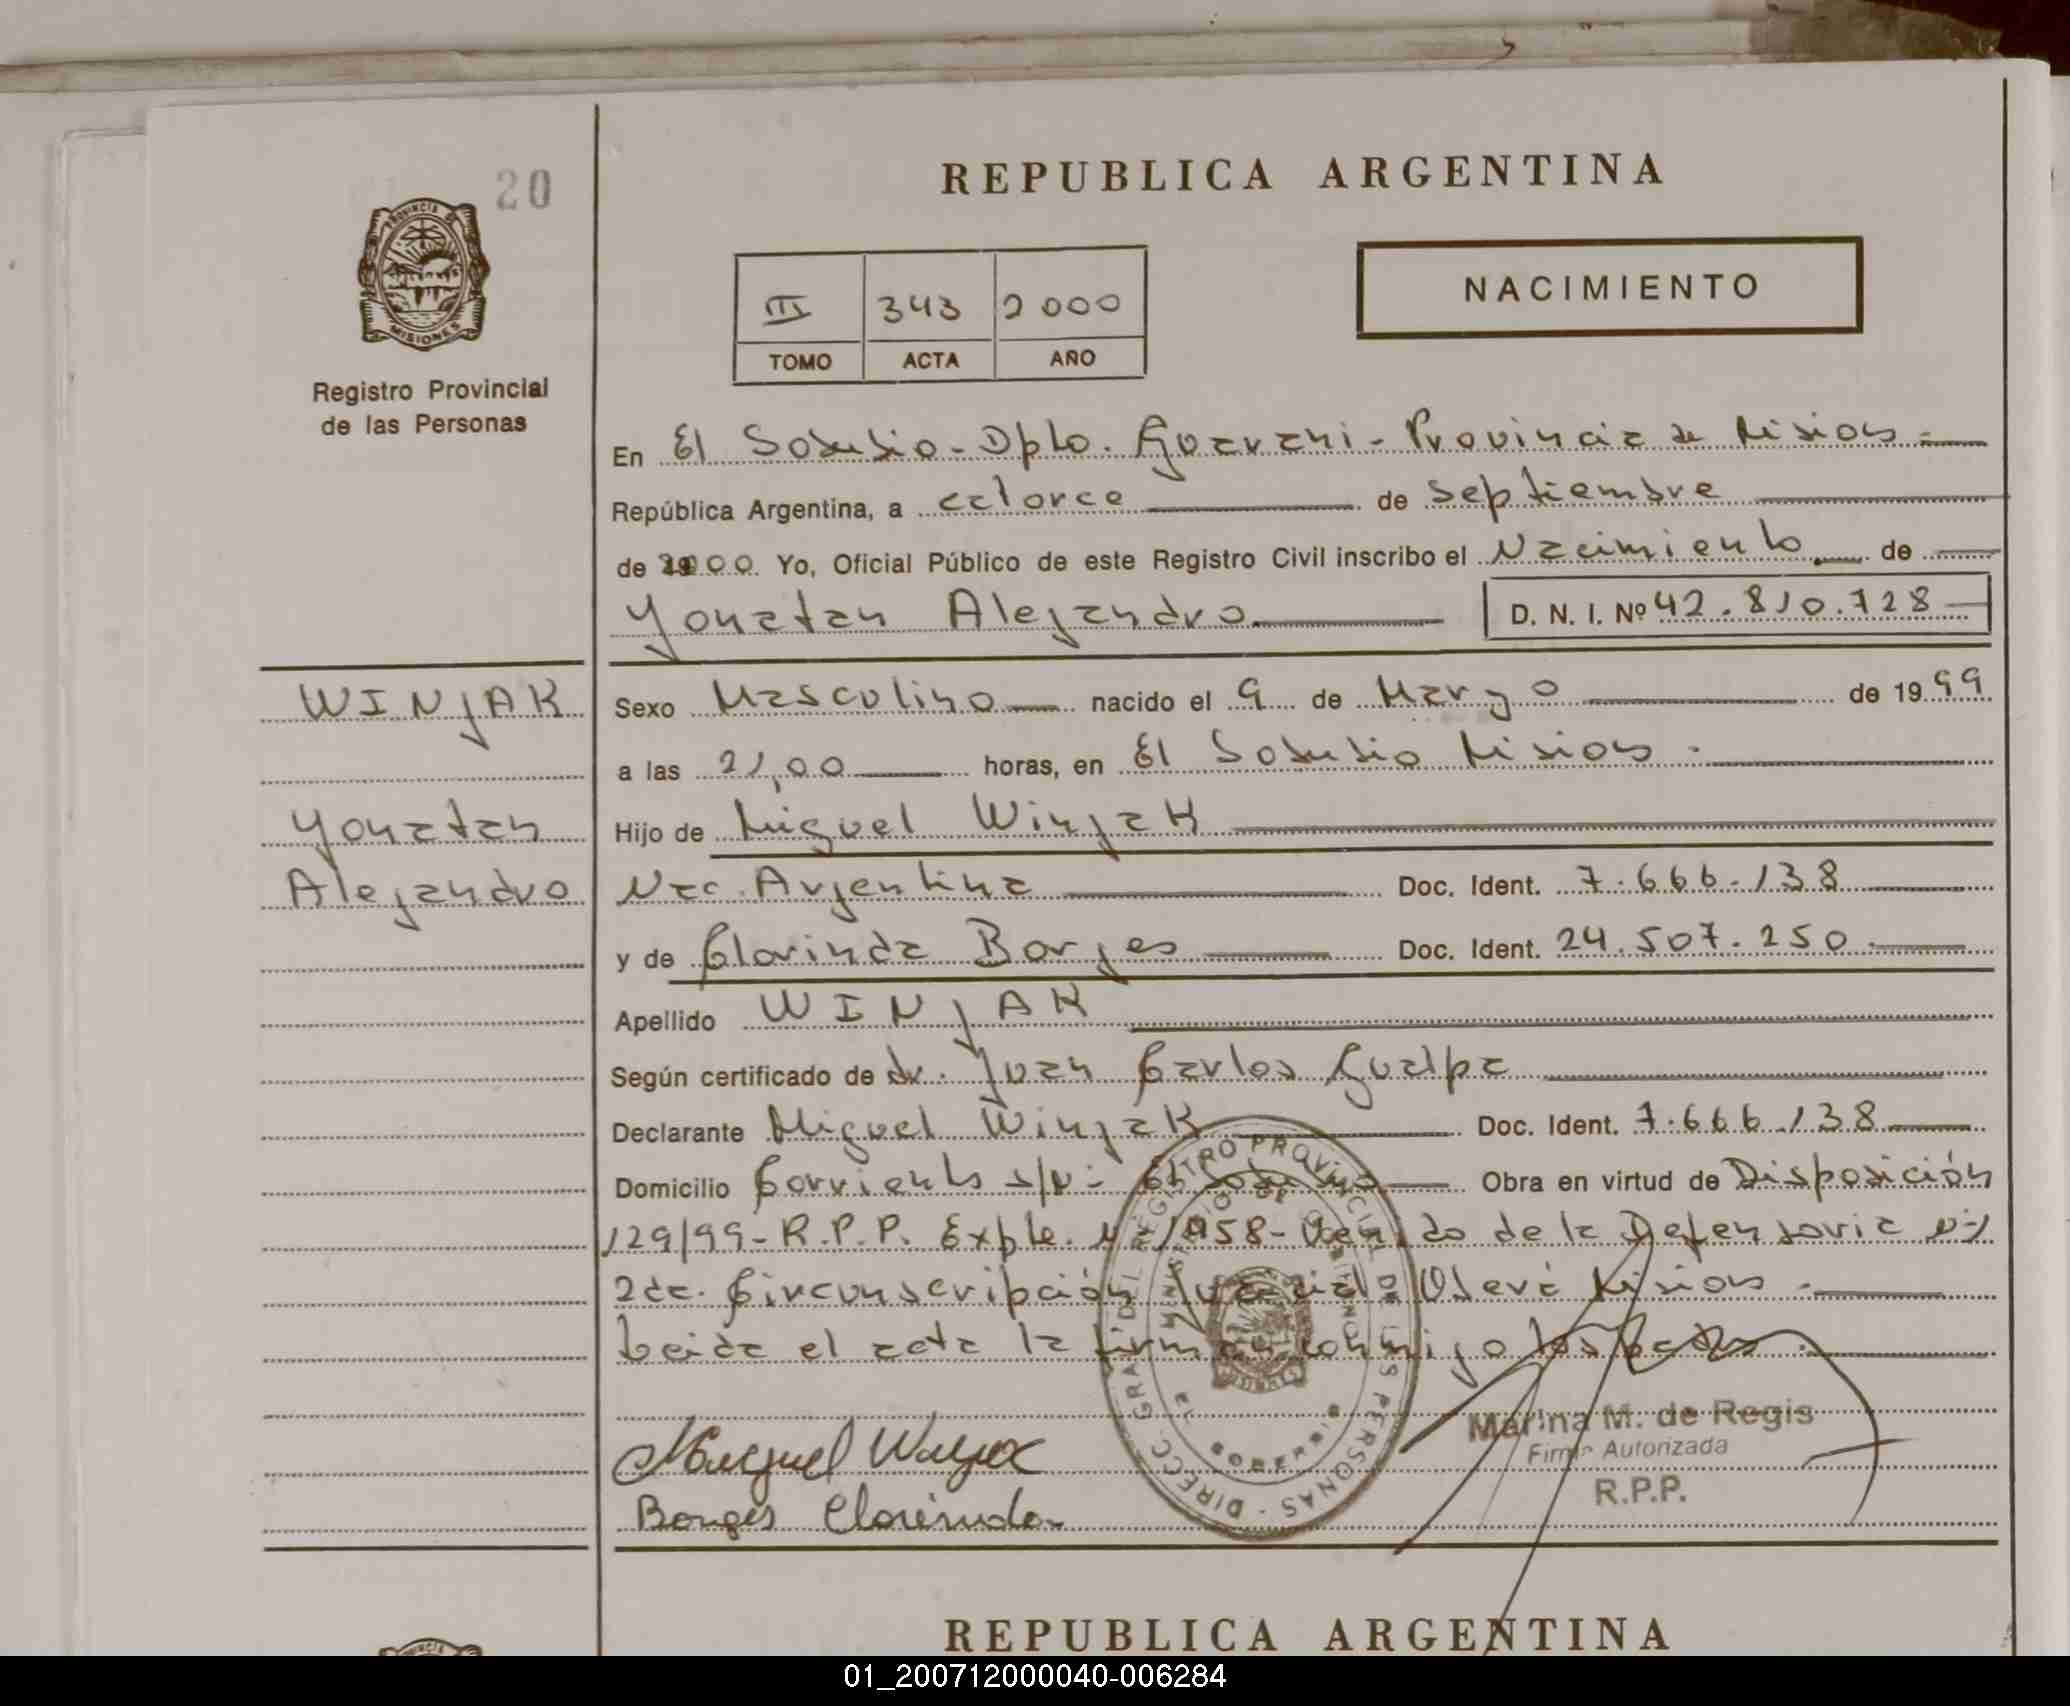 20
PROVINCIA DE
MISIONES
Registro Provincial
de las Personas
REPUBLICA ARGENTINA
NACIMIENTO
III 343 2000
TOMO ACTA AÑO
En El Soberbio - Dpto. Guarani - Provincia de Misiones -
República Argentina, a catorce de Septiembre
de 2000 Yo, Oficial Público de este Registro Civil inscribo el Nacimiento de
Yonatan Alejandro D. N. I. Nº 42.810.728
WINJAK
Yonatan
Alejandro
Sexo Masculino nacido el 9 de Marzo de 1999
a las 21,00 horas, en El Soberbio Misiones.
Hijo de Miguel Winjak
Nac. Argentina Doc. Ident. 7.666.138
y de Clorinda Borges Doc. Ident. 24.507.250
Apellido WINJAK
Según certificado de dr. Juan Carlos Gualpa
Declarante Miguel Winjak Doc. Ident. 7.666.138
Domicilio Corrientes s/nº El Soberbio Obra en virtud de Disposición
129/99 - R.P.P. Expte. 1958 - de la Defensoria nº 1
2da. Circunscripción Judicial Oberá Misiones.
Leida el acta la firman conmigo los Padres.
DIRECC. GRAL DEL REGISTRO PROVINCIAL DE LAS PERSONAS
MINISTERIO DE GOBIERNO
Marina M. de Regis
Firma Autorizada
R.P.P.
Borges Clorinda
REPUBLICA ARGENTINA
01_200712000040-006284